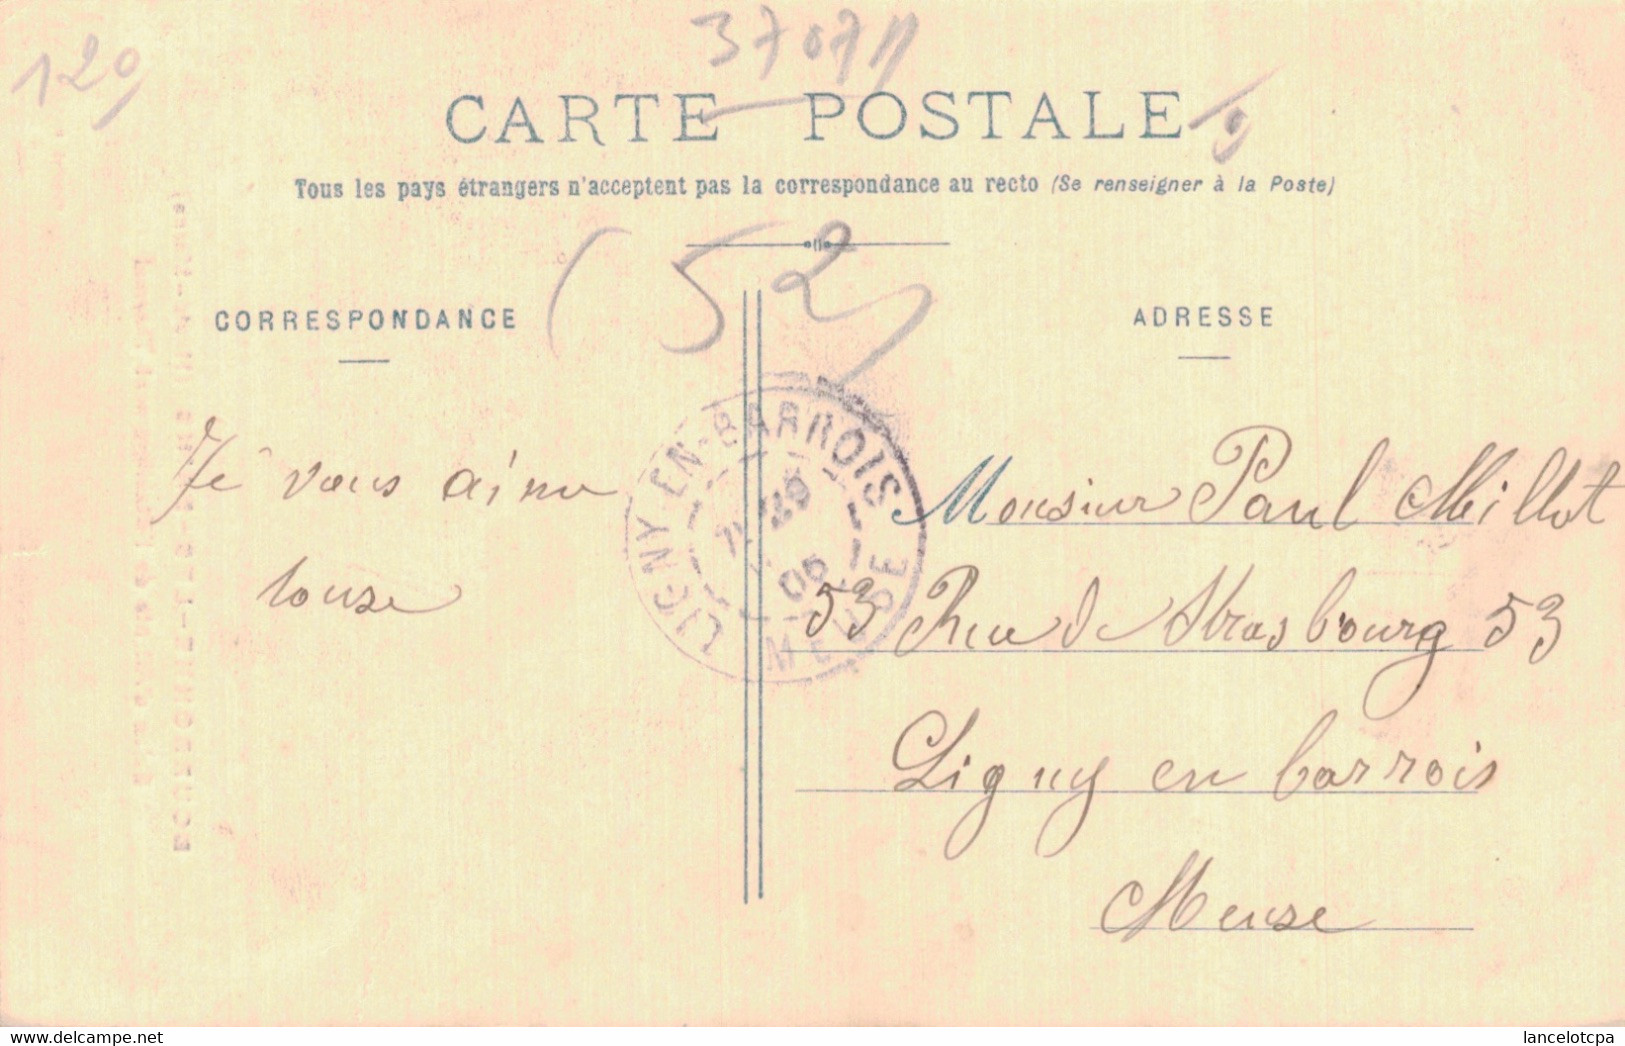 120
CARTE POSTALE
Tous les pays étrangers n'acceptent pas la correspondance au recto (Se renseigner à la Poste)
(52)
CORRESPONDANCE
ADRESSE
LIGNY-EN-BARROIS
MEUSE
Je vous aime
Monsieur Paul Millot
53 Rue de Strasbourg 53
Ligny en barrois
Meuse
delcampe.net
lancelotcpa